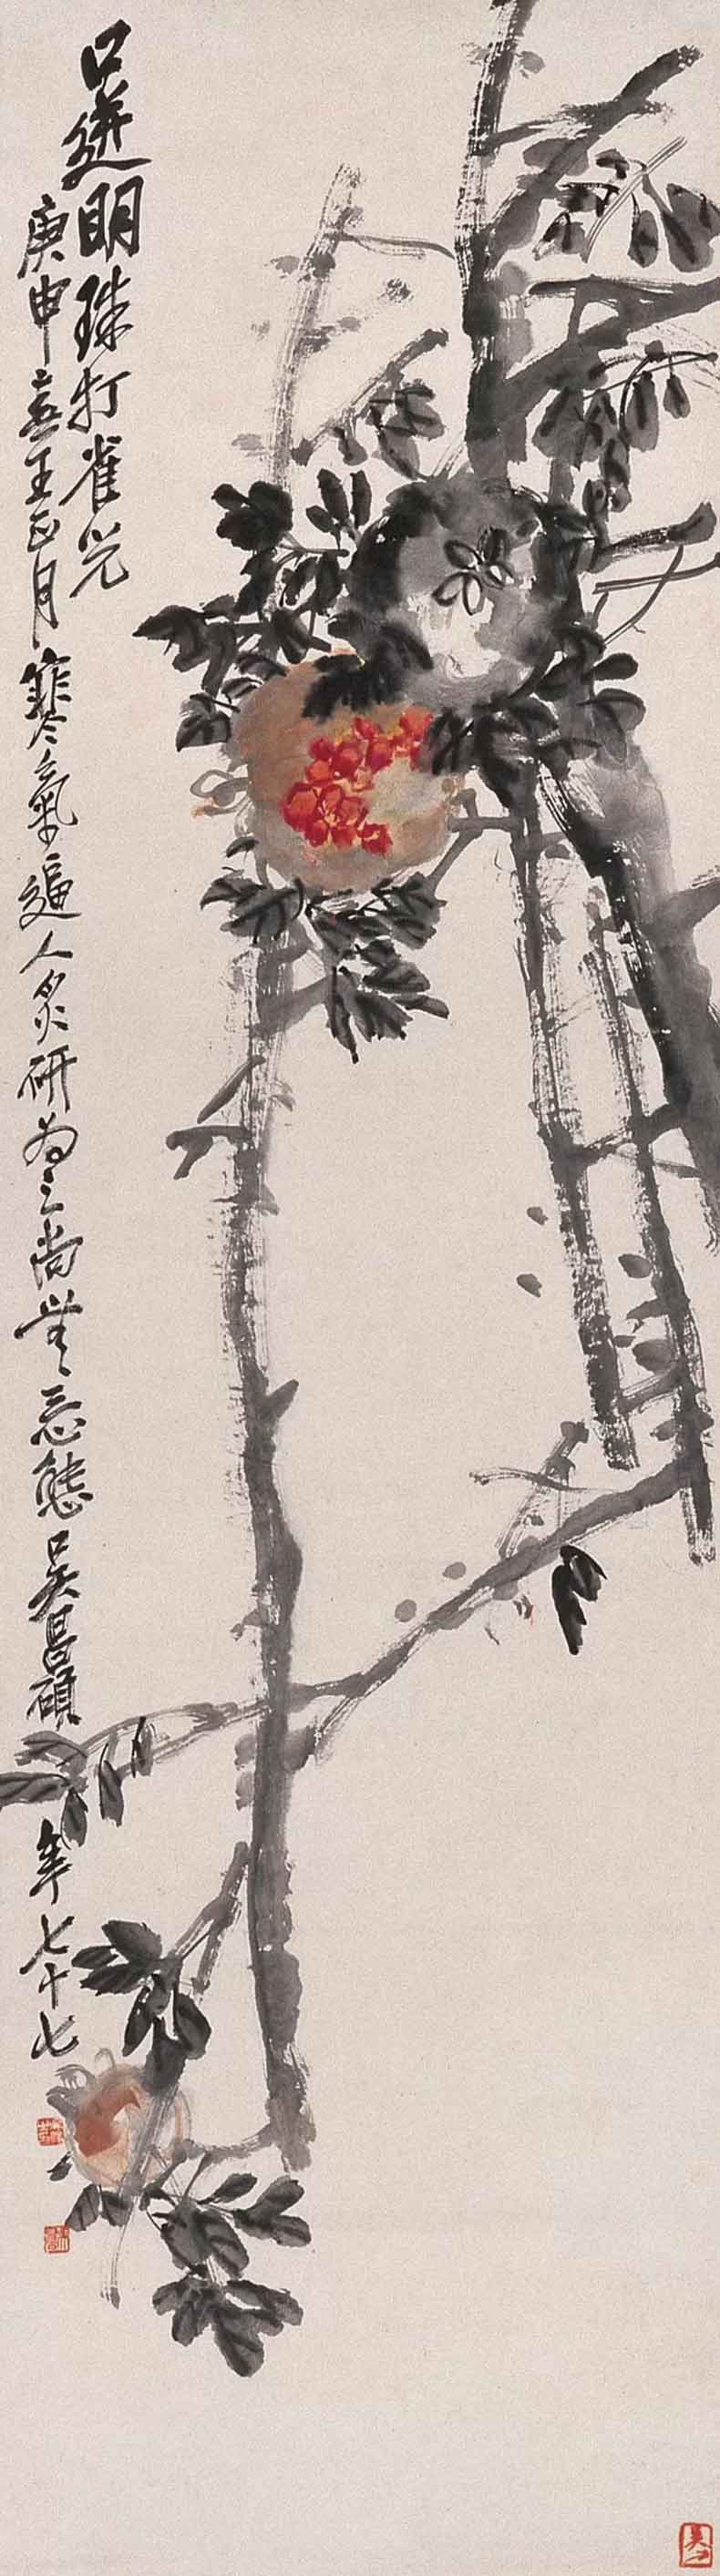 口迸明珠打雀兒
庚申春王正月寒氣逼人炙研為之尚無態吳昌碩年七十七